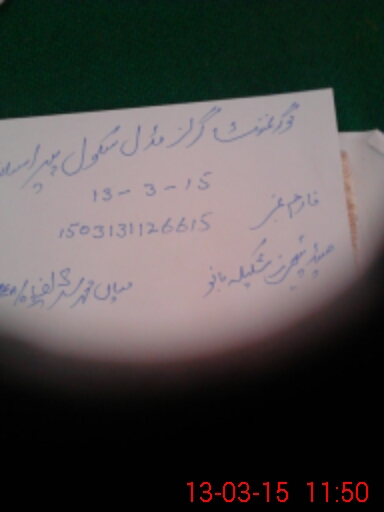 گورنمنٹ گرلز مڈل سکول پیر
13-3-15
فارم نمبر 1503131126615
ہیڈ ٹیچرز شکیلہ بانو
میاں محمد شریف
13-03-15 11:50